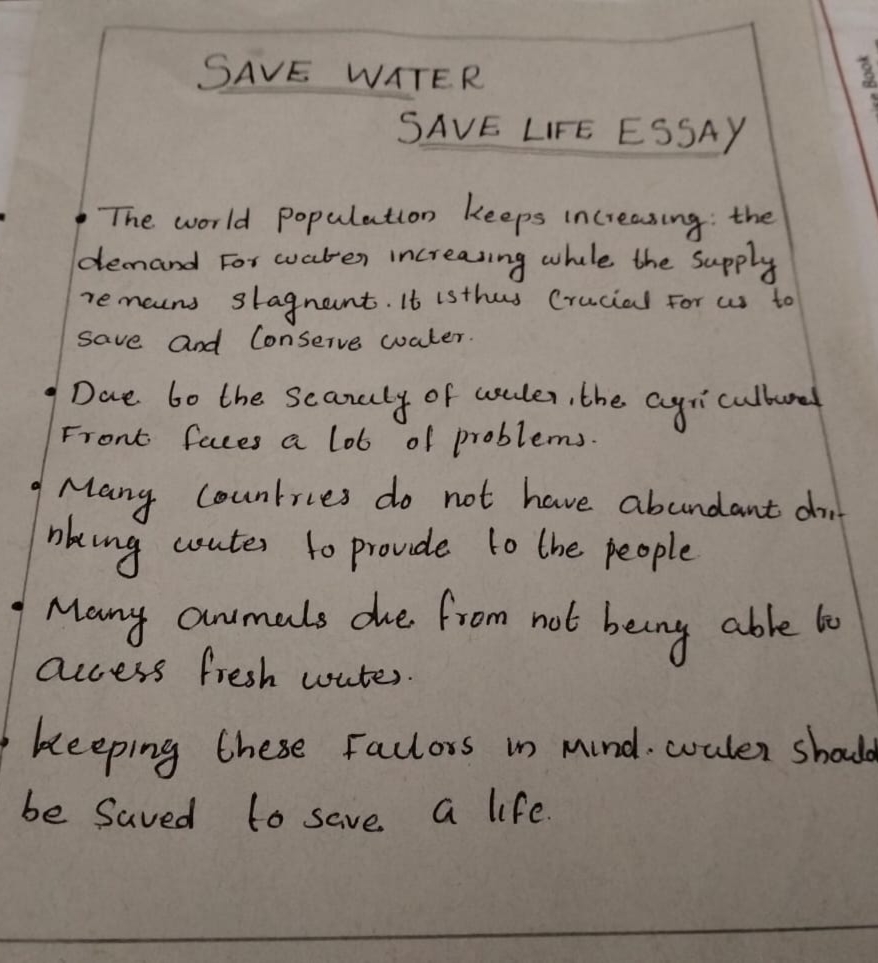 SAVE WATER
SAVE LIFE ESSAY
• The world population keeps increasing: the
demand For water increasing while the supply
remains stagnant. It is thus crucial For us to
save and conserve water.
• Due to the scarcity of water, the agricultural
Front faces a lot of problems.
• Many countries do not have abundant dri
nking water to provide to the people
• Many animals die from not being able to
access fresh water.
• keeping these Factors in Mind. water should
be saved to save a life.
Book